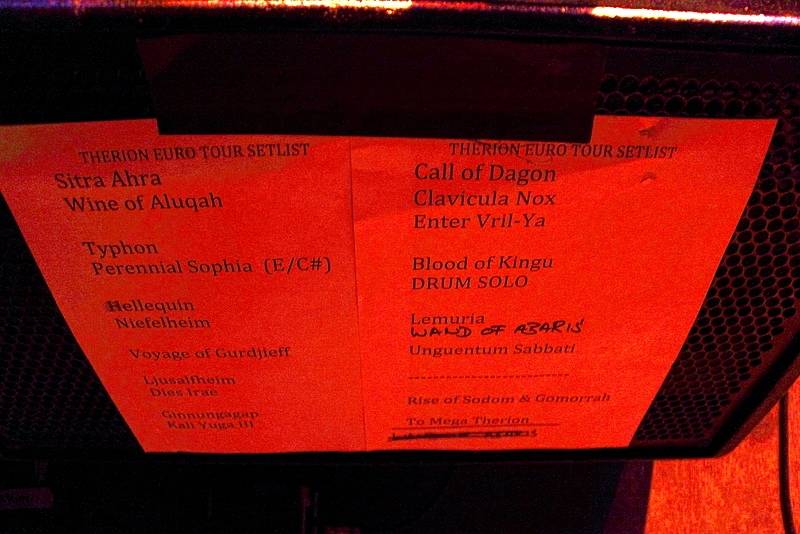 THERION EURO TOUR SETLIST
Sitra Ahra
Wine of Aluqah
Typhon
Perennial Sophia (E/C#)
Hellequin
Niefelheim
Voyage of Gurdjieff
Ljusalfheim
Dies Irae
Ginnungagap
Kali Yuga III
THERION EURO TOUR SETLIST
Call of Dagon
Clavicula Nox
Enter Vril-Ya
Blood of Kingu
DRUM SOLO
Lemuria
WAND OF ABARIS
Unguentum Sabbati
----------------------------
Rise of Sodom & Gomorrah
To Mega Therion